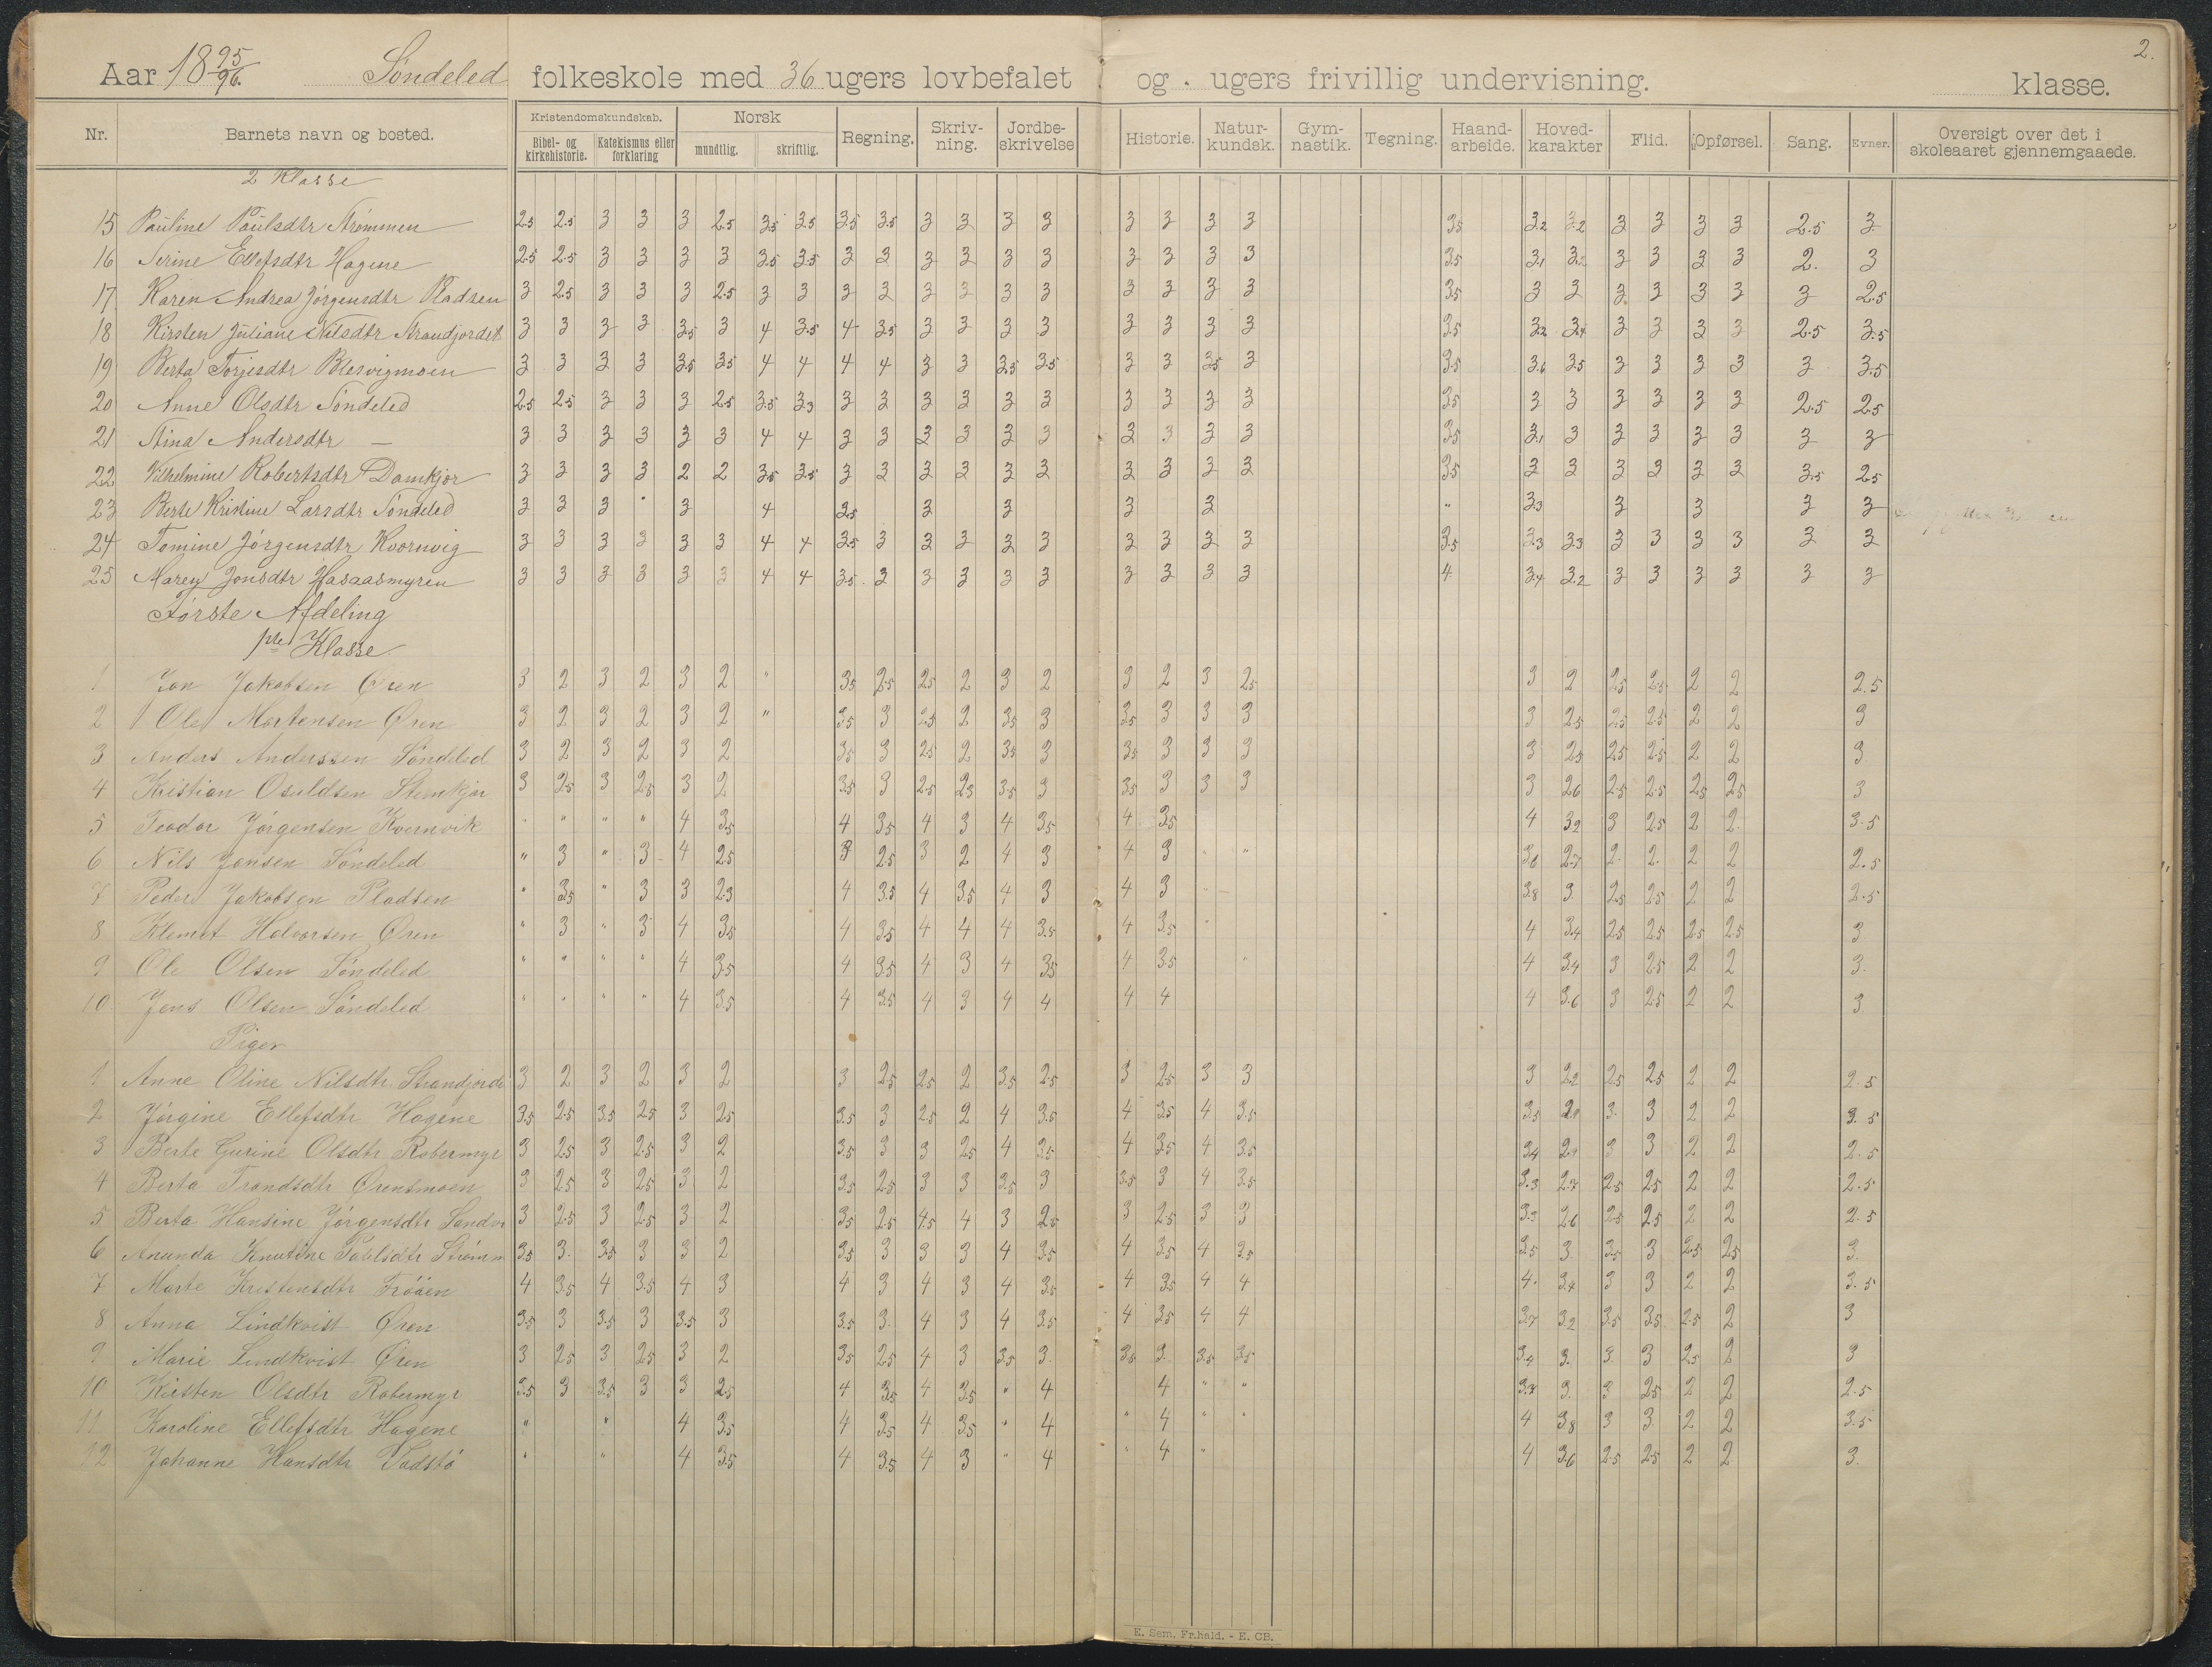 2.
Aar 18 95/96. Söndeled folkeskole med 36 ugers lovbefalet og . ugers frivillig undervisning. klasse.
Nr. Barnets navn og bosted. Kristendomskundskab. Bibel- og kirkehistorie. Katekismus eller forklaring Norsk mundtlig. skriftlig. Regning. Skriv-ning. Jordbe-skrivelse Historie. Natur-kundsk. Gym-nastik. Tegning. Haand-arbeide. Hoved-karakter Flid. Opførsel. Sang. Evner. Oversigt over det i skoleaaret gjennemgaaede.
2 Klasse
15 Pauline Paulsdtr Strømmen 2.5 2.5 3 3 3 2.5 3.5 3.5 3.5 3.5 3 3 3 3 3 3 3 3 3.5 3.2 3.2 3 3 3 3 2.5 3
16 Serine Ellefsdtr Hagene 2.5 2.5 3 3 3 3 3.5 3.5 3 3 3 3 3 3 3 3 3 3 3.5 3.1 3.2 3 3 3 3 2. 3
17 Karen Andrea Jörgensdtr Pladsen 3 2.5 3 3 3 2.5 3 3 3 3 3 3 3 3 3 3 3 3 3.5 3 3 3 3 3 3 3 2.5
18 Kirsten Juliane Nilsdtr Strandjordet 3 3 3 3 3.5 3 4 3.5 4 3.5 3 3 3 3 3 3 3 3 3.5 3.2 3.4 3 3 3 3 2.5 3.5
19 Berta Torjesdtr Blesvigmoen 3 3 3 3 3.5 3.5 4 4 4 4 3 3 3.5 3.5 3 3 3.5 3 3.5 3.6 3.5 3 3 3 3 3 3.5
20 Anne Olsdtr Söndeled 2.5 2.5 3 3 3 2.5 3.5 3.3 3 3 3 3 3 3 3 3 3 3 3.5 3 3 3 3 3 3 2.5 2.5
21 Stina Andersdtr — 3 3 3 3 3 3 4 4 3 3 3 3 3 3 3 3 3 3 3.5 3.1 3 3 3 3 3 3 3
22 Vilhelmine Robertsdtr Damkjør 3 3 3 3 2 2 3.5 3.5 3 3 3 3 3 3 3 3 3 3 3.5 3 3 3 3 3 3 3.5 2.5
23 Berte Kristine Larsdtr Söndeled 3 3 3 3 4 3.5 3 3 3 3 " 3.3 3 3 3 3
24 Tomine Jörgensdtr Kvernvig 3 3 3 3 3 3 4 4 3.5 3 3 3 3 3 3 3 3 3 3.5 3.3 3.3 3 3 3 3 3 3
25 Maren Jonsdtr Hasaasmyren 3 3 3 3 3 3 4 4 3.5 3 3 3 3 3 3 3 3 3 4 3.4 3.2 3 3 3 3 3 3
Første Afdeling
1ste Klasse
1 Jon Jakobsen Øren 3 2 3 2 3 2 " 3.5 2.5 2.5 2 3 2 3 2 3 2.5 3 2 2.5 2.5 2 2 2.5
2 Ole Mortensen Øren 3 2 3 2 3 2 " 3.5 3 2.5 2 3.5 3 3.5 3 3 3 3 2.5 2.5 2.5 2 2 3
3 Anders Anderssen Söndeled 3 2 3 2 3 2 3.5 3 2.5 2 3.5 3 3.5 3 3 3 3 2.5 2.5 2.5 2 2 3
4 Kristian Osuldsen Stemkjær 3 2.5 3 2.5 3 2 3.5 3 2.5 2.3 3.5 3 3.5 3 3 3 3 2.6 2.5 2.5 2.5 2.5 3
5 Teodor Jörgensen Kvernvik " " " " 4 3.5 4 3.5 4 3 4 3.5 4 3.5 4 3.2 3 2.5 2 2 3.5
6 Nils Jansen Söndeled " 3 " 3 4 2.5 3 2.5 3 2 4 3 4 3 " " 3.6 2.7 2 2 2 2 2.5
7 Peder Jakobsen Pladsen " 3.5 " 3 3 2.3 4 3.5 4 3.5 4 3 4 3 " 3.8 3 2.5 2.5 2 2 2.5
8 Klemet Halvorsen Øren " 3 " 3 4 3.5 4 3.5 4 4 4 3.5 4 3.5 " 4 3.4 2.5 2.5 2.5 2.5 3
9 Ole Olsen Söndeled " " " " 4 3.5 4 3.5 4 3 4 3.5 4 3.5 " 4 3.4 3 2.5 2 2 3.
10 Jens Olsen Söndeled " " " " 4 3.5 4 3.5 4 3 4 4 4 4 4 3.6 3 2.5 2 2 3
Piger
1 Anne Oline Nilsdtr Strandjorde 3 2 3 2 3 2 3 2.5 2.5 2 3.5 2.5 3 2.5 3 3 3 2.2 2.5 2.5 2 2 2.5
2 Jörgine Ellefsdtr Hagene 3.5 2.5 3.5 2.5 3 2.5 3.5 3 2.5 2 4 3.5 4 3.5 4 3.5 3.5 2.9 3. 3 2 2 3.5
3 Berte Gurine Olsdtr Robermyr 3 2.5 3 2.5 3 2 3.5 3 3 2.5 4 3.5 4 3.5 4 3.5 3.4 2.9 3 3 2 2 2.5
4 Berta Trondsdtr Ørensmoen 3 2.5 3 2.5 3 2 3.5 2.5 3 3 3.5 3 3.5 3 4 3.5 3.3 2.7 2.5 2.5 2 2 2.5
5 Berta Hansine Jörgensdtr Sandvi 3 2.5 3 2.5 3 2 3.5 2.5 4.5 4 3 2.5 3 2.5 3 3 3.3 2.6 2.5 2.5 2 2 2.5
6 Anunda Knutine Paulsdtr Strømm 3.5 3. 3.5 3 3 2 3.5 3 3 3 4 3.5 4 3.5 4 3.5 3.5 3 3.5 3 2.5 2.5 3.
7 Marte Kristensdtr Fröåen 4 3.5 4 3.5 4 3 4 3 4 3 4 3.5 4 3.5 4 4 4. 3.4 3 3 2 2 3.5
8 Anna Lindkvist Øren 3.5 3 3.5 3 3.5 3 3.5 3. 4 3 4 3.5 4 3.5 4 4 3.7 3.2 3.5 3.5 2.5 2 3
9 Marie Lindkvist Øren 3 2.5 3 2.5 3 2 3.5 2.5 4 3 3.5 3. 3.5 3. 3.5 3.5 3.4 3. 3. 3 2.5 2 3
10 Kirsten Olsdtr Robermyr 3.5 3 3.5 3 3 2.5 4 3.5 4 3.5 " 4 4 " " 3.7 3. 3 2.5 2 2 2.5
11 Karoline Ellefsdtr Hagene " " 4 3.5 4 3.5 4 3.5 " 4 " 4 " " 4 3.8 3 3 2 2 3.5
12 Johanne Hansdtr Vadstö " " 4 3.5 4 3.5 4 3 " 4 " 4 " 4 3.6 2.5 2.5 2 2 3.
E. Sem. Fr.hald. - E. CB.